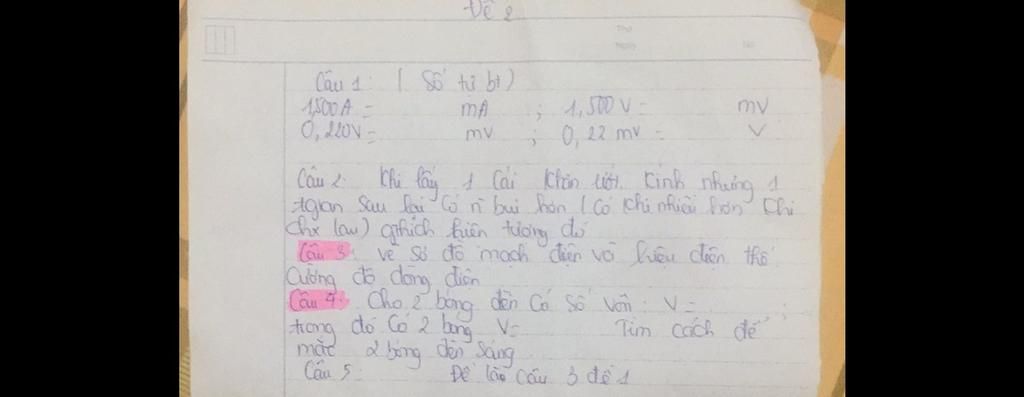 Đề 2
Câu 1: ( Số tự bt)
1,500A = mA ; 1,500 V = mV
0,220V = mV ; 0,22 mV = V
Câu 2: Khi lấy 1 cái khăn lười. Kính nhưng 1
tgian sau lại có n̄ bụi hơn (có khi nhiều hơn khi
chx lau) gthích hiện tượng đó
Câu 3: vẽ sơ đồ mạch điện với hiệu điện thế
Cường độ dòng điện
Câu 4: Cho 2 bóng đèn có số vôn: V = ;
trong đó có 2 bóng V= Tìm cách để
mắc 2 bóng đèn sáng
Câu 5: Đề là câu 3 đề 1